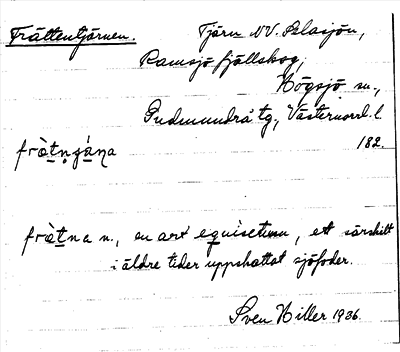 Fràttentjärnen.
Tjärn NV. Blåsjön,
Ramsjö fjällskog,
Högsjö sn.,
Gudmundrå tg, Västernorrl. l.
182.
frȧ̀tn̥ʒána
frȧ̀tna n., en art equisetum, ett särskilt
i äldre tider uppskattat sjöfoder.
Sven Hiller 1936.